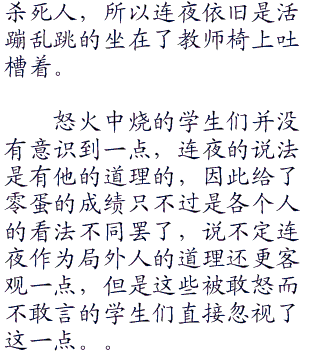 杀死人，所以连夜依旧是活
蹦乱跳的坐在了教师椅上吐
槽着。
怒火中烧的学生们并没
有意识到一点，连夜的说法
是有他的道理的，因此给了
零蛋的成绩只不过是各个人
的看法不同罢了，说不定连
夜作为局外人的道理还更客
观一点，但是这些被敢怒而
不敢言的学生们直接忽视了
这一点。。